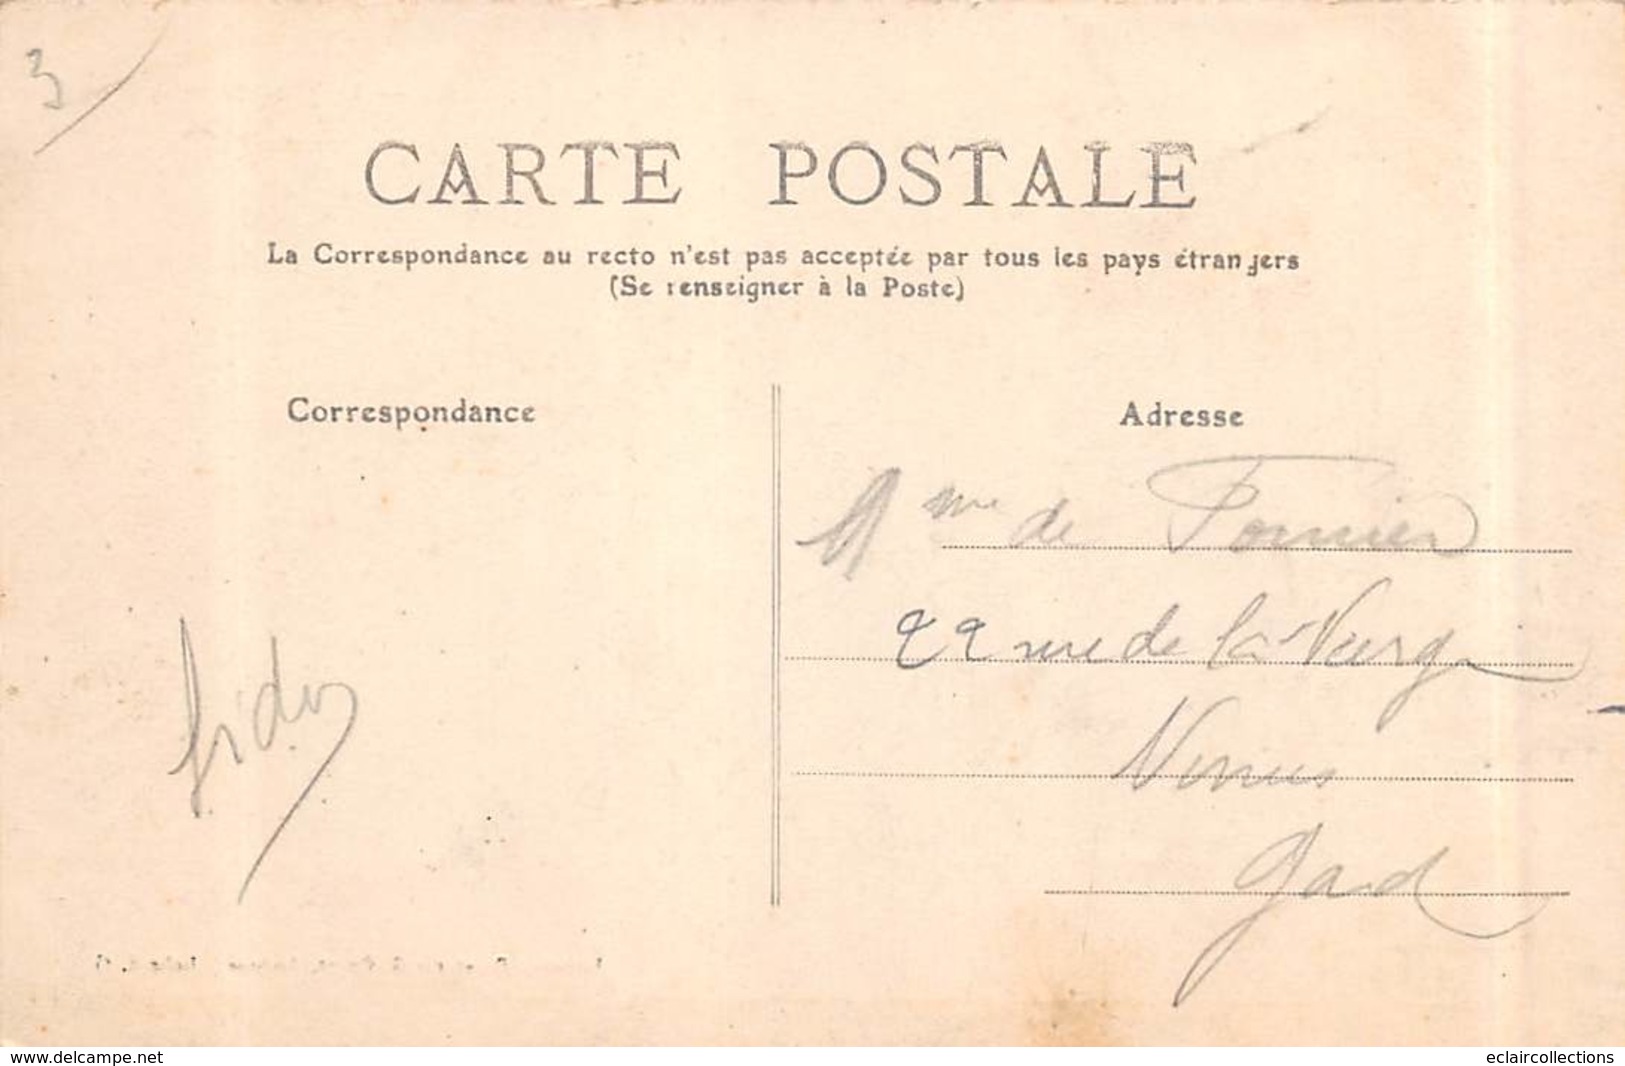 3
CARTE POSTALE
La Correspondance au recto n'est pas acceptée par tous les pays étrangers
(Se renseigner à la Poste)
Correspondance
Adresse
Mme de
22 rue de la
Gard
www.delcampe.net
eclaircollections